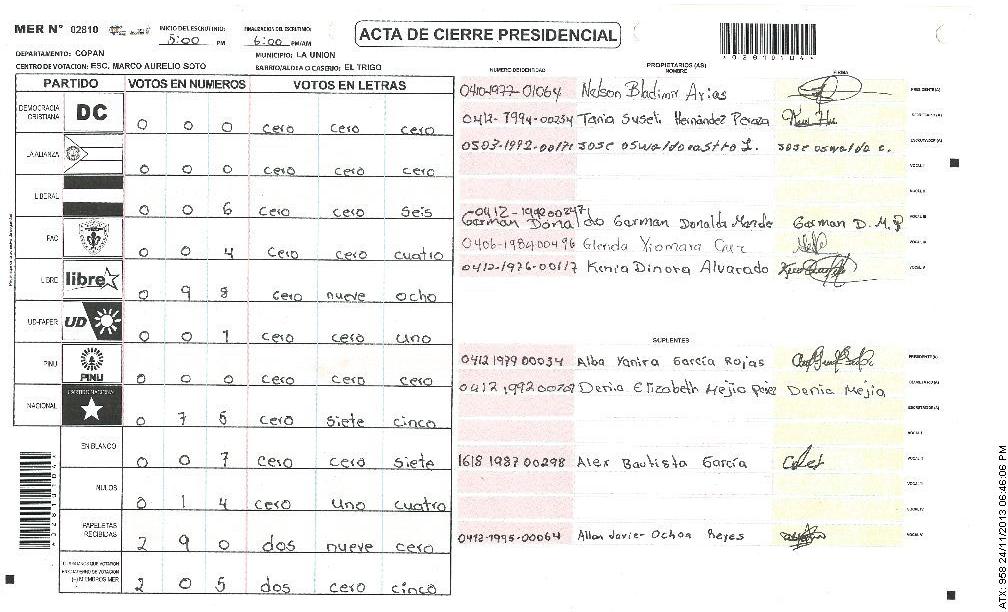 MER N° 02810 INICIO DEL ESCRUTINIO: 5:00 PM FINALIZACION DEL ESCRUTINIO: 6:00 PM/AM ACTA DE CIERRE PRESIDENCIAL
*02810104*
DEPARTAMENTO: COPAN MUNICIPIO: LA UNION
CENTRO DE VOTACION: ESC. MARCO AURELIO SOTO BARRIO/ALDEA O CASERIO: EL TRIGO
PARTIDO VOTOS EN NUMEROS VOTOS EN LETRAS
DEMOCRACIA CRISTIANA DC 0 0 0 cero cero cero
LA ALIANZA 0 0 0 cero cero cero
LIBERAL 0 0 6 cero cero seis
PAC 0 0 4 cero cero cuatro
LIBRE libre 0 9 8 cero nueve ocho
UD-FAPER UD 0 0 1 cero cero uno
PINU PINU 0 0 0 cero cero cero
NACIONAL PARTIDO NACIONAL 0 7 5 cero siete cinco
EN BLANCO 0 0 7 cero cero siete
NULOS 0 1 4 cero uno cuatro
PAPELETAS RECIBIDAS 2 9 0 dos nueve cero
(+) MIEMBROS MER 2 0 5 dos cero cinco
NUMERO DE IDENTIDAD PROPIETARIOS (AS) NOMBRE FIRMA
0410-1977-01064 Nelson Bladimir Arias PRESIDENTE (A)
0412-1994-00234 Tania Suseti Hernández Peraza SECRETARIO (A)
0503-1992-00171 Jose oswaldo castro L. Jose oswaldo c. ESCRUTADOR (A)
VOCAL I
VOCAL II
0412-199200247
German Donaldo German Donaldo German D. M. P VOCAL III
0406-198400496 Glenda Xiomara VOCAL IV
0412-1976-00117 Kenia Dinora Alvarado VOCAL V
SUPLENTES
0412 1979 00034 Alba Yanira García Rojas PRESIDENTE (A)
0412 1992 Denia Elizabeth Mejia Denia Mejia SECRETARIO (A)
ESCRUTADOR (A)
VOCAL I
1618 1987 00298 Alex Bautista García VOCAL II
VOCAL III
VOCAL IV
0412-1995-00064 Allan Javier Ochoa Reyes VOCAL V
ATX: 958 24/11/2013 06:46:06 PM